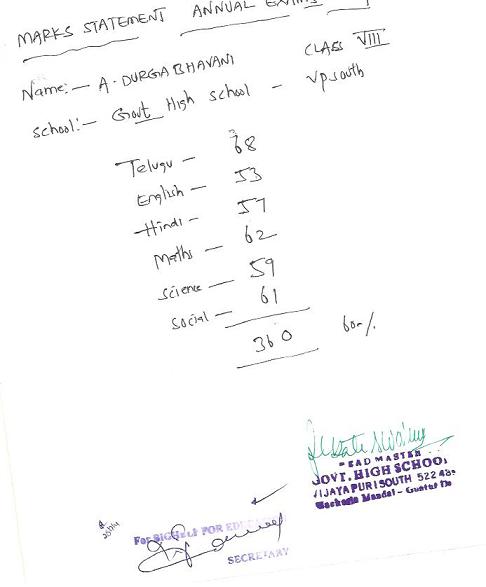 MARKS STATEMENT ANNUAL
CLASS VIII
Name:- A. DURGA BHAVANI
School:- Govt High school - VP south
Telugu - 68
English - 53
Hindi - 57
Maths - 62
Science - 59
Social - 61
360 60%
HEAD MASTER
GOVT. HIGH SCHOOL
VIJAYAPURI SOUTH 522 439
Macherla Mandal - Guntur Dt
For FOR
SECRETARY